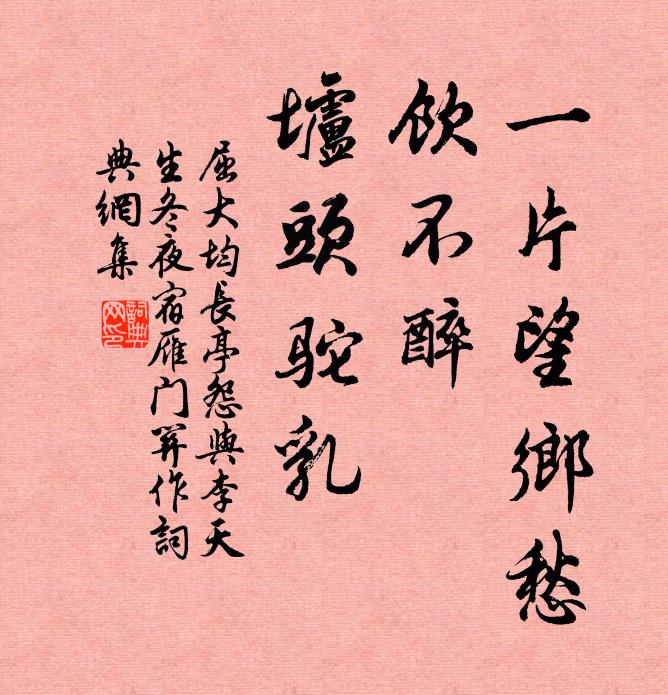 一片望鄉愁
飲不醉
壚頭駝乳
屈大均長亭怨與李天
生冬夜宿雁門關作詞
典網集
詞典
网印